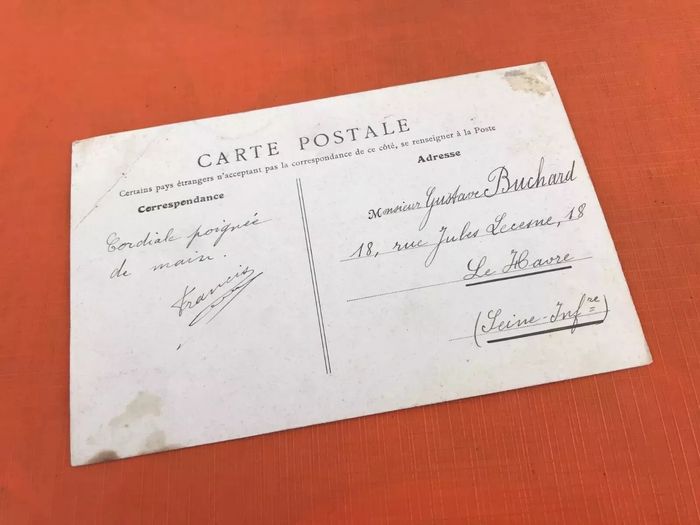 CARTE POSTALE
Certains pays étrangers n'acceptant pas la correspondance de ce côté, se renseigner à la Poste
Correspondance
Cordiale poignée
de main.
Francis
Adresse
Monsieur Gustave Buchard
18, rue Jules Lecesne, 18
Le Havre
(Seine-Infre)